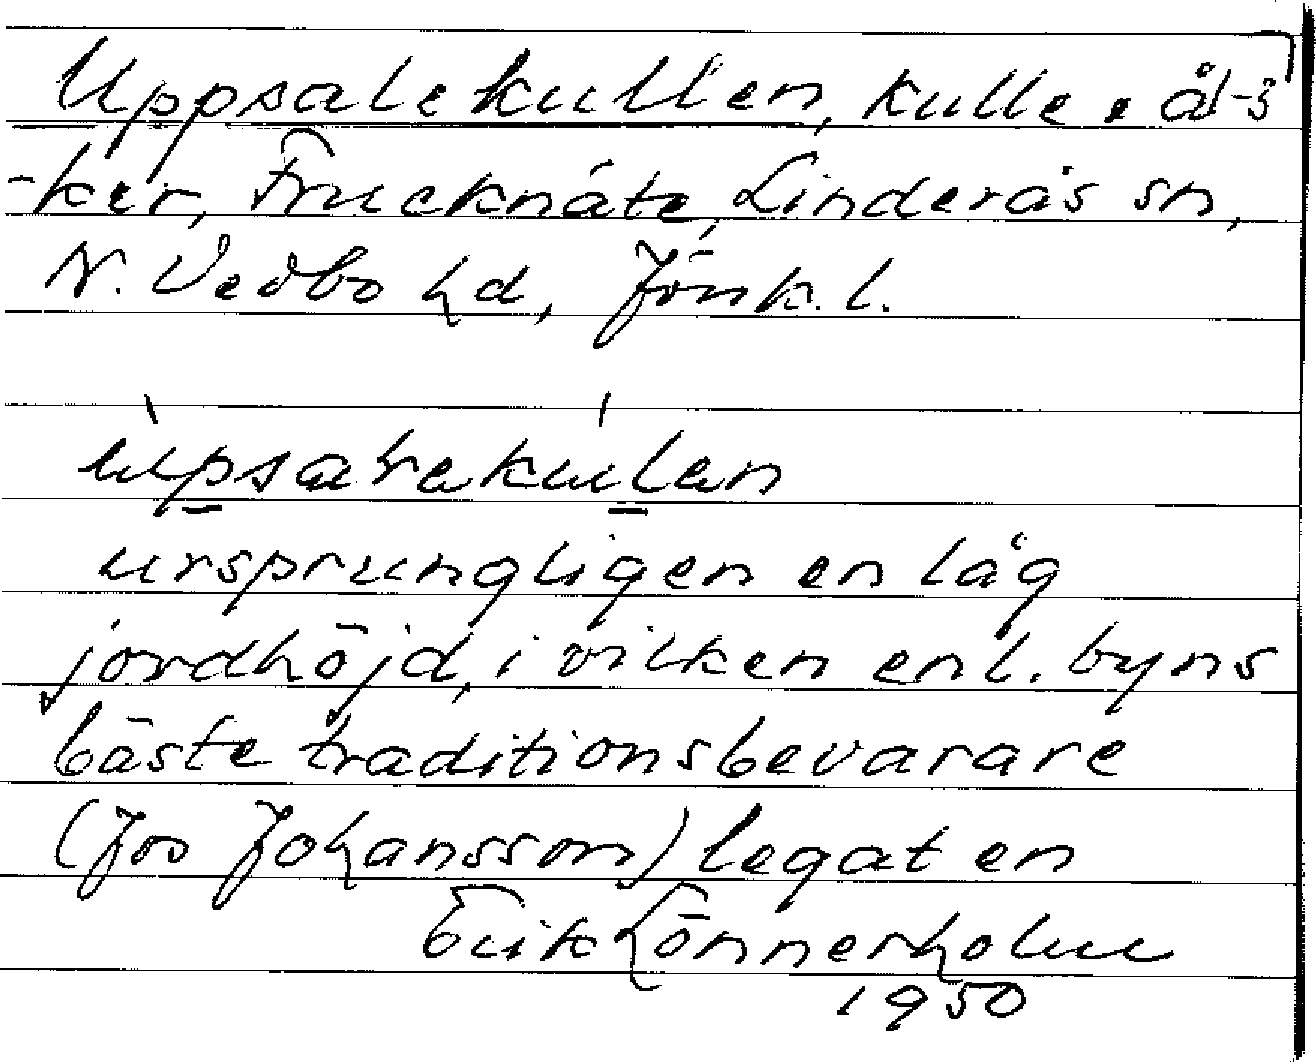 Uppsalekullen, kulle o. åk-
-ker, Frucknäte, Linderås sn,
N. Vedbo hd, Jönk. l.
ùpsalekúlen
ursprungligen en låg
jordhöjd, i vilken enl. byns
bäste traditionsbevarare
(Jos Johansson) legat en
Erik Lönnerholm
1950